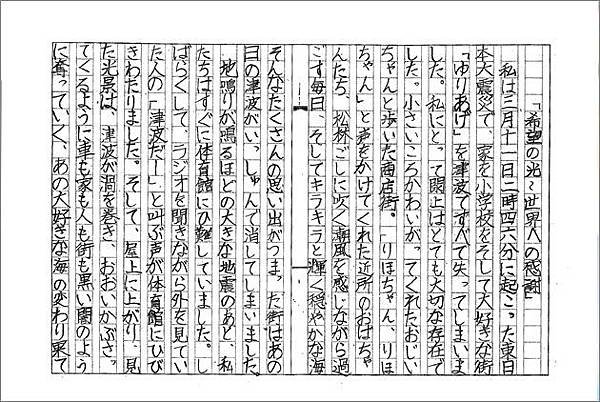 「希望の光～世界への感謝」
私は三月十一日二時四六分に起こった東日
本大震災で、家を小学校をそして大好きな街
「ゆりあげ」を津波ですべて失ってしまいま
した。私にとって閖上はとても大切な存在で
した。小さいころかわいがってくれたおじい
ちゃんと歩いた商店街。「りほちゃん、りほ
ちゃん」と声をかけてくれた近所のおばちゃ
んたち、松林ごしに吹く潮風を感じながら過
ごす毎日、そしてキラキラと輝く穏やかな海
そんなたくさんの思い出がつまった街はあの
日の津波がいっしゅんで消してしまいました。
地鳴りが鳴るほどの大きな地震のあと、私
たちはすぐに体育館にひ難していました。し
ばらくして、ラジオを聞きながら外を見てい
た人の「津波だー」と叫ぶ声が体育館にひび
きわたりました。そして、屋上に上がり、見
た光景は、津波が渦を巻き、おおいかぶさっ
てくるように車も家も人も街も黒い闇のよう
に奪っていく、あの大好きな海の変わり果て